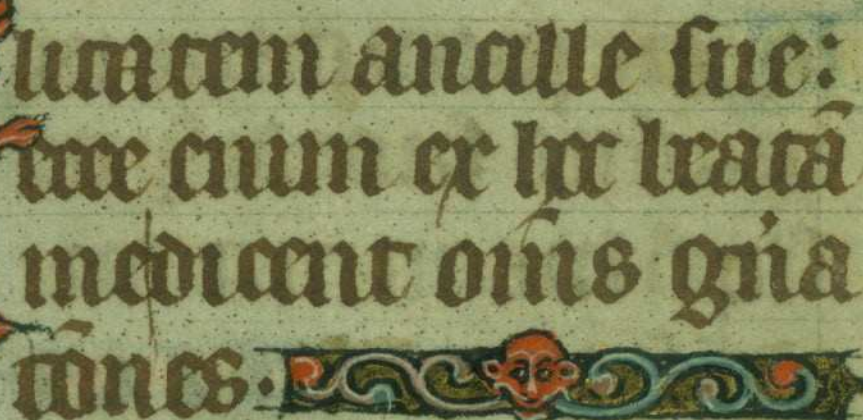 litatem ancille sue:
ecce enim ex hoc beatā
me dicent om̄s gn̄a
tōnes.